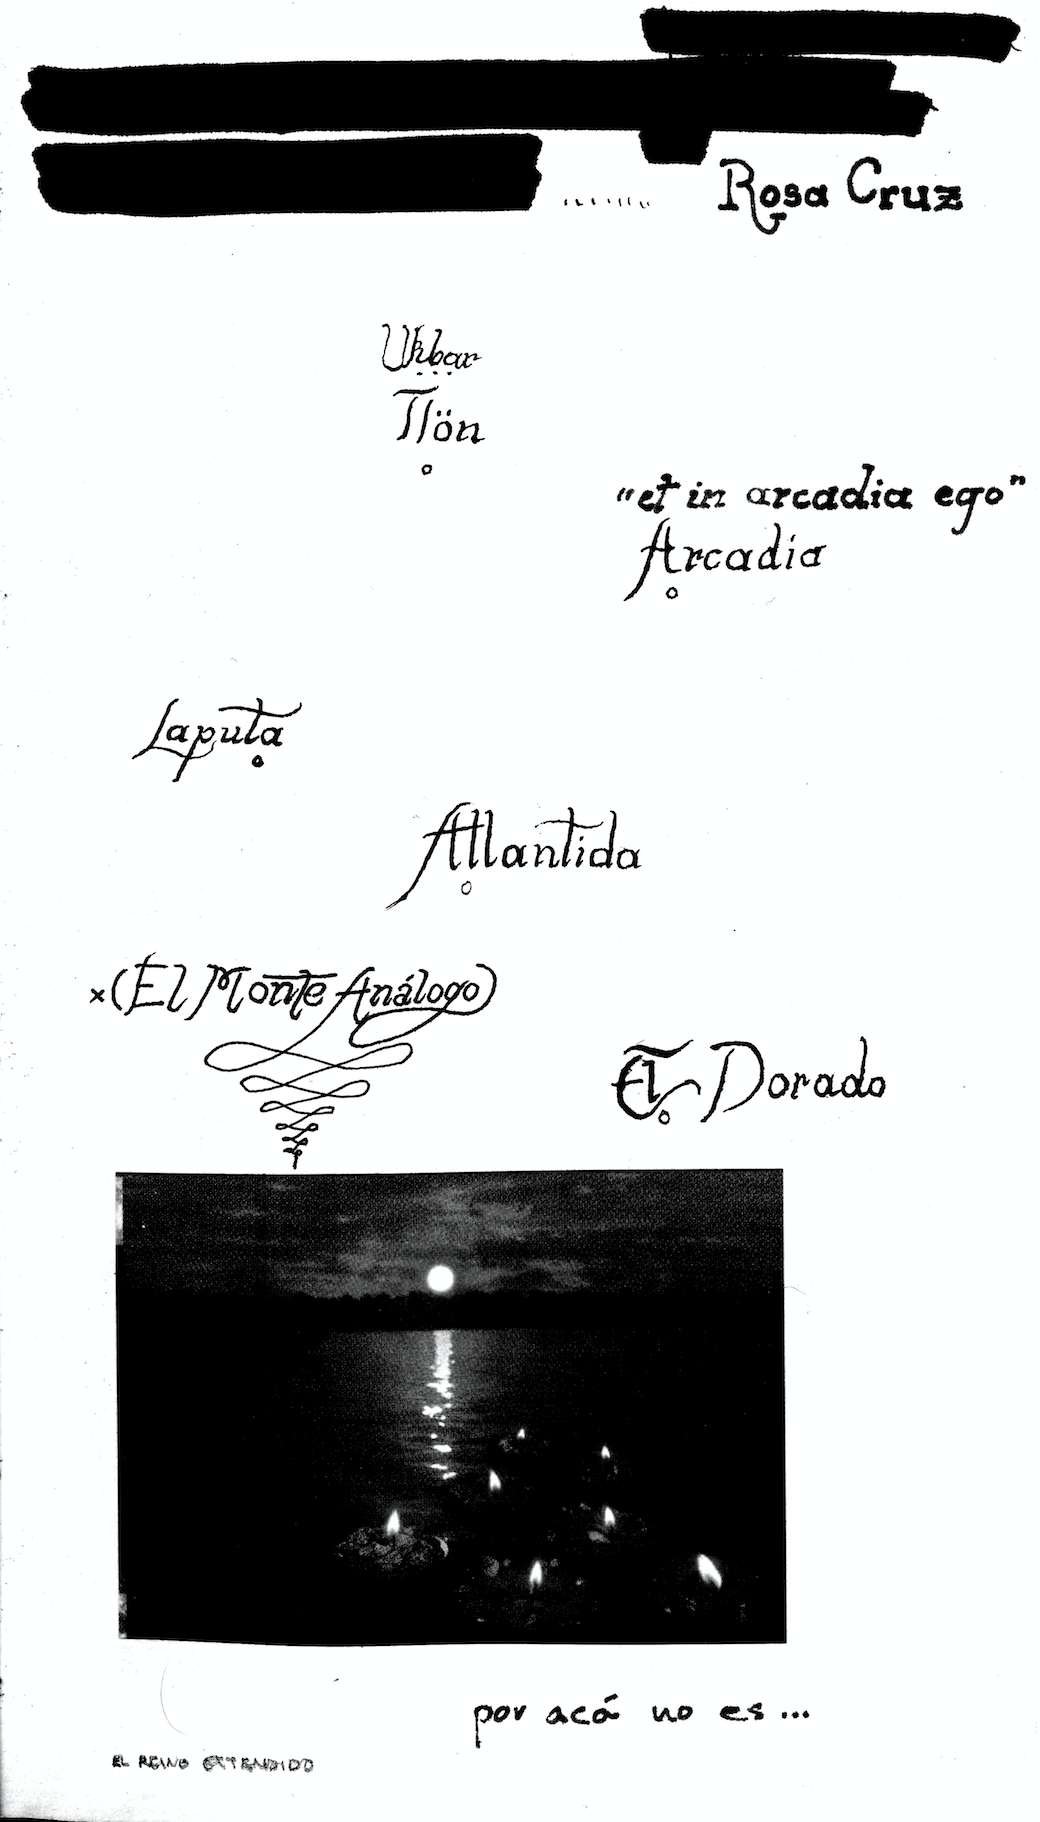 Rosa Cruz
Ukbar
Tlön
"et in arcadia ego"
Arcadia
Laputa
Atlantida
x (El Monte Análogo)
El Dorado
por acá no es...
EL REINO EXTENDIDO